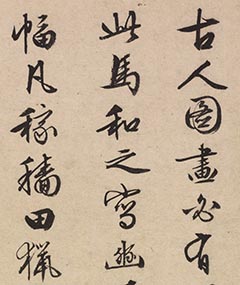 古人圖畫必有
此馬和之寫豳
幅凡稼穡田獵